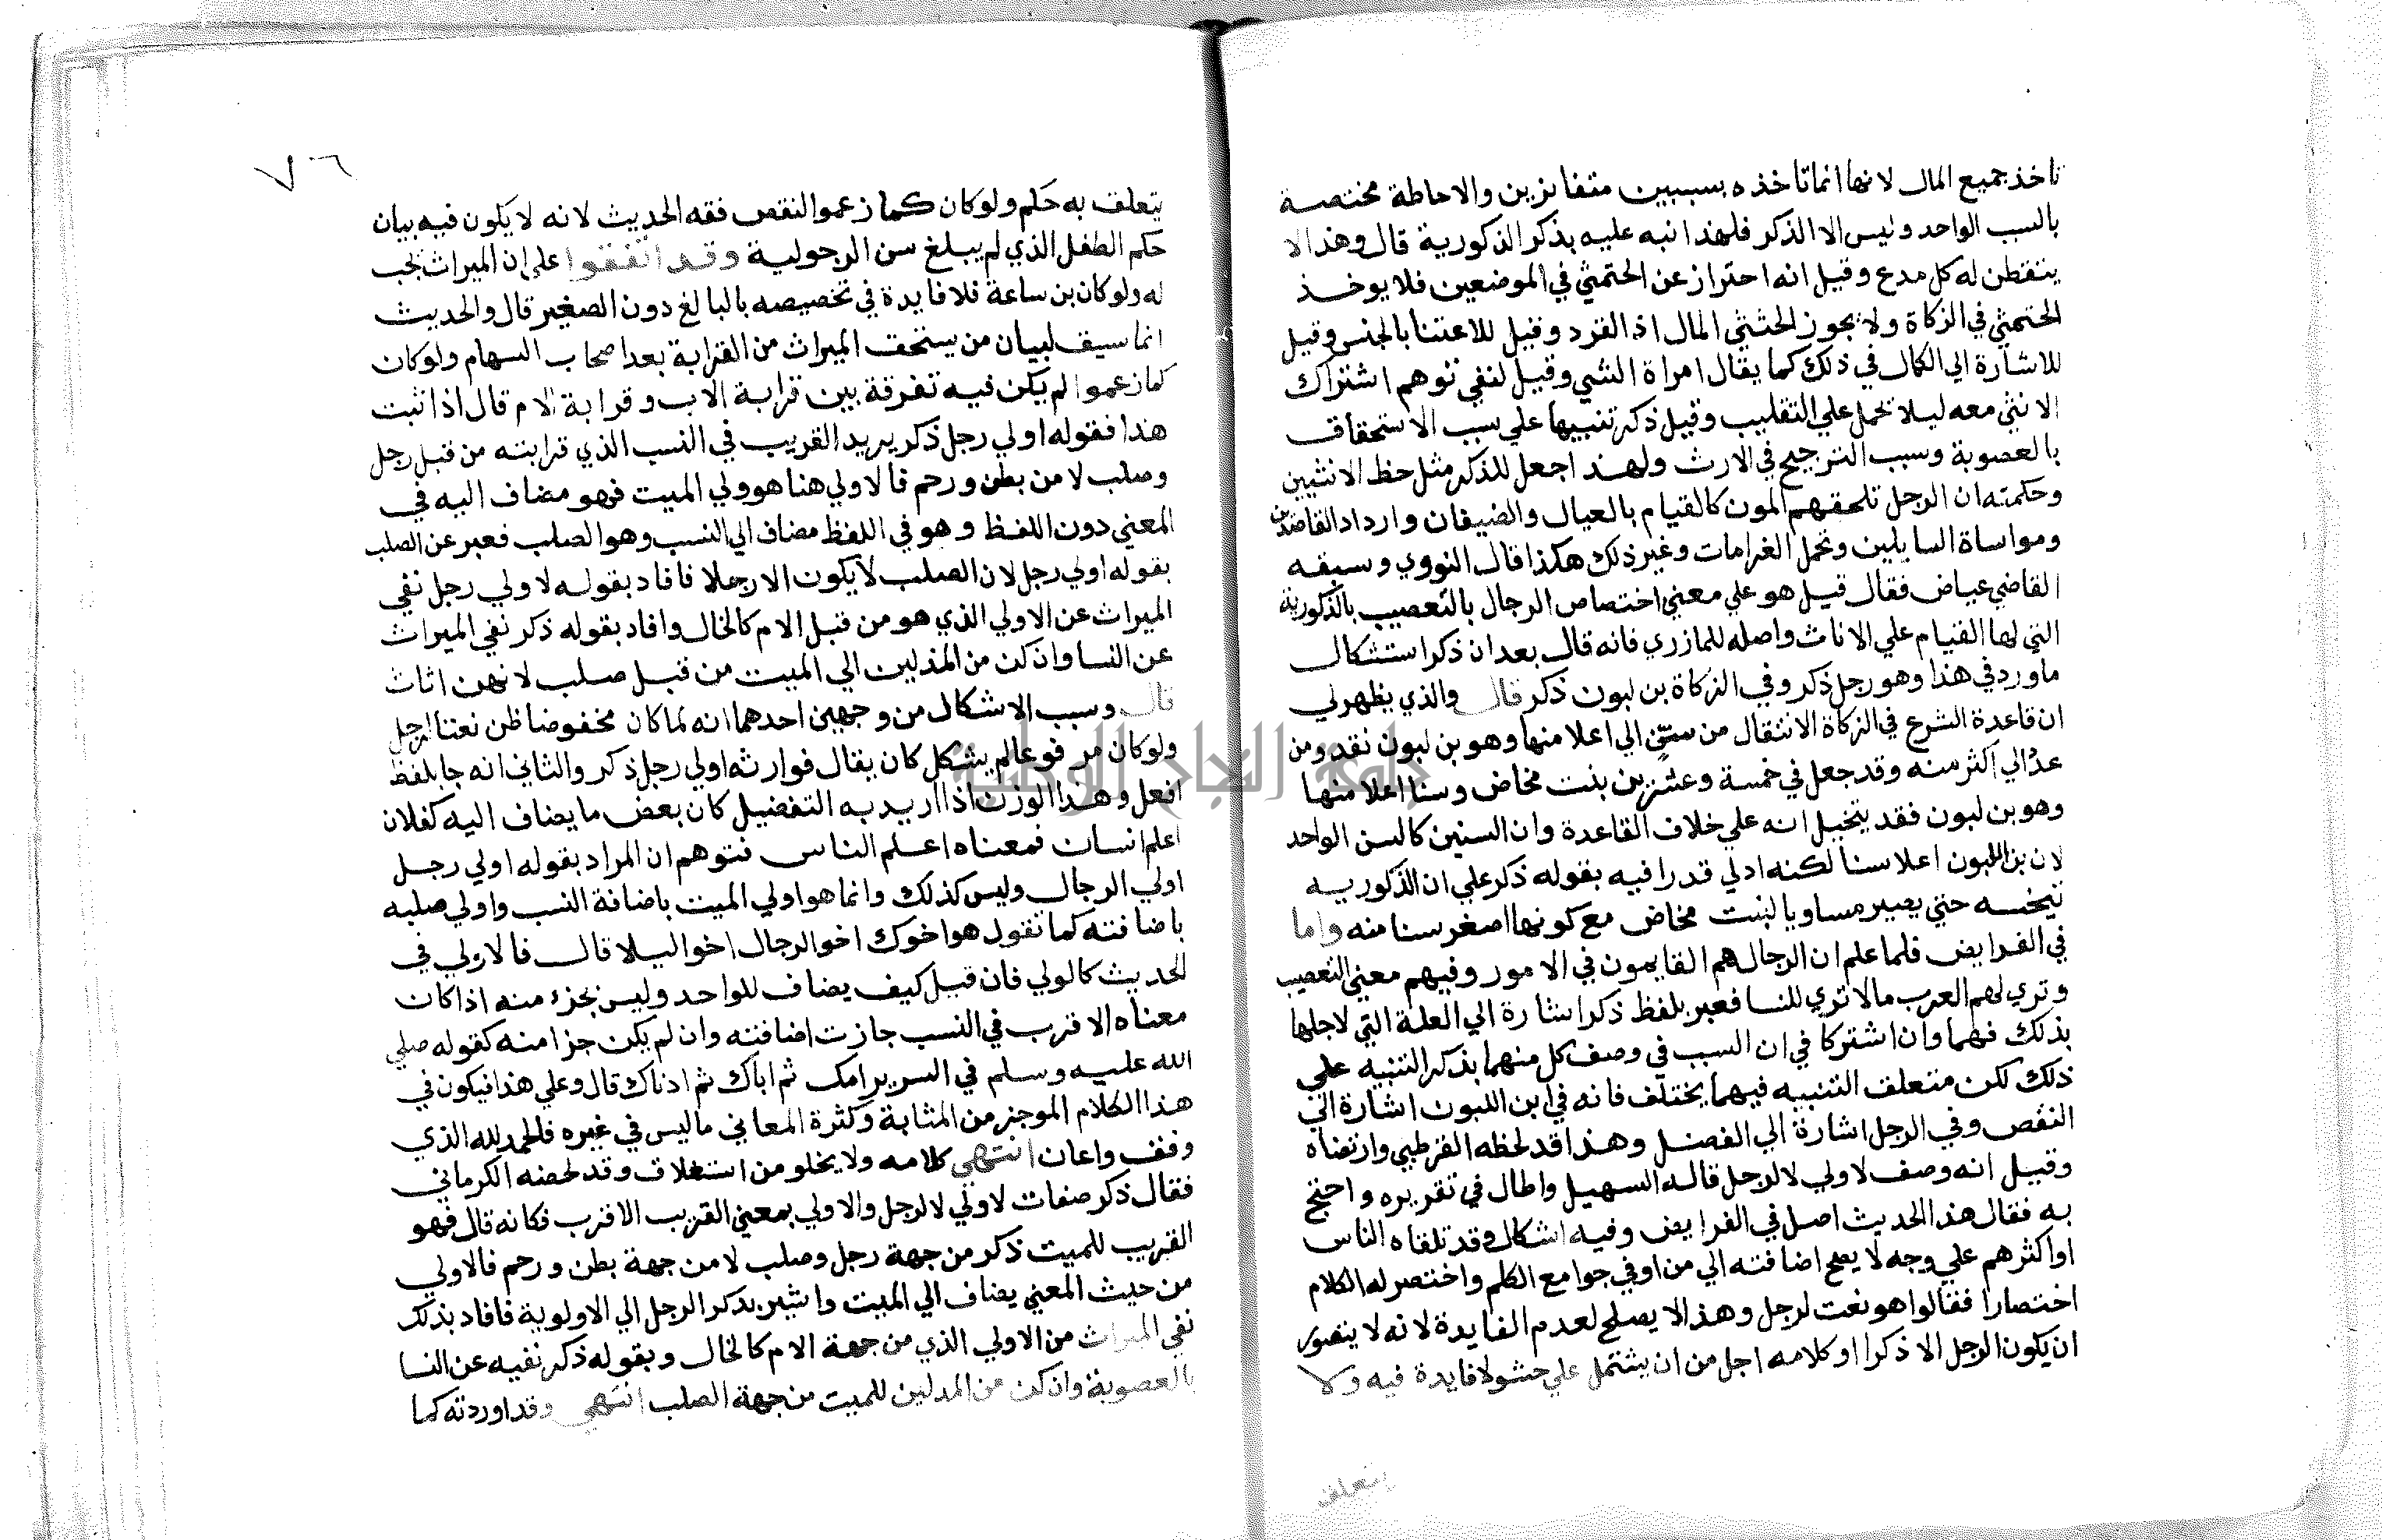 تاخذ جميع المال لانها انما تاخذه بسببين متغايرين والاحاطة مختصة
بالسبب الواحد وليس الا الذكر فلهذا نبه عليه بذكر الذكورية قال وهذا لا
يتفطن له كل مدع وقيل انه احتراز عن الخنثي في الموضعين فلا يوخذ
الخنثي في الزكاة ولا يجوز الخنثي المال اذا انفرد وقيل للاعتنا بالجنس وقيل
للاشارة الي الكمال في ذلك كما يقال امراة انثي وقيل لنفي توهم اشتراك
الانثي معه ليلا يحمل علي التغليب وقيل ذكر تنبيها علي سبب الاستحقاق
بالعصوبة وسبب الترجيح في الارث ولهذا جعل للذكر مثل حظ الانثيين
وحكمته ان الرجل تلحقهم المون كالقيام بالعيال والضيفان وارداد القاصدين
ومواساة السايلين وتحمل الغرامات وغير ذلك هكذا قال النووي وسبقه
القاضي عياض فقال قيل هو علي معني اختصاص الرجال بالتعصيب بالذكورية
التي لها القيام علي الاناث واصله للمازري فانه قال بعد ان ذكر استشكال
ما ورد في هذا وهو رجل ذكر وفي الزكاة بن لبون ذكر قال والذي يظهر لي
ان قاعدة الشرع في الزكاة الانتقال من سنّ الي اعلا منها وهو بن لبون نقد ومن
عد الي اكثر منه وقد جعل في خمسة وعشرين بنت مخاض وسنا اعلا منها
وهو بن لبون فقد يتخيل انه علي خلاف القاعدة وان السنين كالسن الواحد
لان بن اللبون اعلا سنا لكنه ادلي قدرا فيه بقوله ذكر علي ان الذكوريه
تبخسه حتي يصير مساويا لبنت مخاض مع كونها اصغر سنا منه واما
في الفرايض فلما علم ان الرجال هم القايمون في الامور وفيهم معني التعصيب
وتري لهم العرب ما لا تري للنسا فعبر بلفظ ذكر اشارة الي العلة التي لاجلها
بذلك فهما وان اشتركا في ان السبب في وصف كل منهما بذكر التنبيه علي
ذلك لكن متعلق التنبيه فيهما يختلف فانه في ابن اللبون اشارة الي
النقص وفي الرجل اشارة الي الفضل وهذا قد لحظه القرطبي وارتضاه
وقيل انه وصف لاولي لا لرجل قاله السهيل واطال في تقريره واحتج
به فقال هذا الحديث اصل في الفرايض وفيه اشكال وقد تلقاه الناس
او اكثرهم علي وجه لا يصح اضافته الي من اوفي جوامع الكلم واختصر له الكلام
اختصارا فقالوا هو نعت لرجل وهذا لا يصلح لعدم الفايدة لانه لا يتصور
ان يكون الرجل الا ذكرا وكلامه اجل من ان يشتمل علي حشو لا فايدة فيه ولا
يتعلق
٧٦
يتعلق به حكم ولو كان كما زعموا لنقص فقه الحديث لانه لا يكون فيه بيان
حكم الطفل الذي لم يبلغ سن الرجولية وقد اتفقوا علي ان الميراث يجب
له ولو كان بن ساعة فلا فايدة في تخصيصه بالبالغ دون الصغير قال والحديث
انما سيق لبيان من يستحق الميراث من القرابة بعد اصحاب السهام ولو كان
كما زعموا لم يكن فيه تفرقة بين قرابة الاب وقرابة الام قال اذا ثبت
هذا فقوله اولي رجل ذكر يريد القريب في النسب الذي قرابته من قبل رجل
وصلب لا من بطن ورحم فالاولي هنا هو ولي الميت فهو مضاف اليه في
المعني دون اللفظ وهو في اللفظ مضاف الي النسب وهو الصلب فعبر عن الصلب
بقوله اولي رجل لان الصلب لا يكون الا رجلا فافاد بقوله لاولي رجل نفي
الميراث عن الاولي الذي هو من قبل الام كالخال وافاد بقوله ذكر نفي الميراث
عن النسا وان كن من المدلين الي الميت من قبل صلب لانهن اناث
قال وسبب الاشكال من وجهين احدهما انه لما كان مخفوضا ظن نعتا لرجل
ولو كان مرفوعا لم يشكل كان يقال فوارثه اولي رجل ذكر والثاني انه جا بلفظ
افعل وهذا الوزن اذا اريد به التفضيل كان بعض ما يضاف اليه كفلان
اعلم انسان فمعناه اعلم الناس فتوهم ان المراد بقوله اولي رجل
اولي الرجال وليس كذلك وانما هو اولي الميت باضافة النسب واولي صلبه
باضافته كما تقول هو اخوك اخو الرجال اخوا ليلا قال فالاولي في
الحديث كالولي فان قيل كيف يضاف للواحد وليس بجزء منه اذا كان
معناه الاقرب في النسب جازت اضافته وان لم يكن جزا منه كقوله صلي
الله عليه وسلم في السر بر امك ثم اباك ثم ادناك قال وعلي هذا فيكون في
هذا الكلام الموجز من المثابة وكثرة المعاني ما ليس في غيره فالحمد لله الذي
وفق واعان انتهي كلامه ولا يخلو من استغلاق وقد لخصه الكرماني
فقال ذكر صفات لاولي لا لرجل والاولي بمعني القريب الاقرب فكانه قال فهو
القريب للميت ذكر من جهة رجل وصلب لا من جهة بطن ورحم فالاولي
من حيث المعني يضاف الي الميت واشير بذكر الرجل الي الاولوية فافاد بذلك
نفي الميراث من الاولي الذي من جهة الام كالخال وبقوله ذكر نفيه عن النسا
بالعصوبة وان كن من المدلين للميت من جهة الصلب انتهي وقد اوردته كما
جامعة النجاح الوطنية